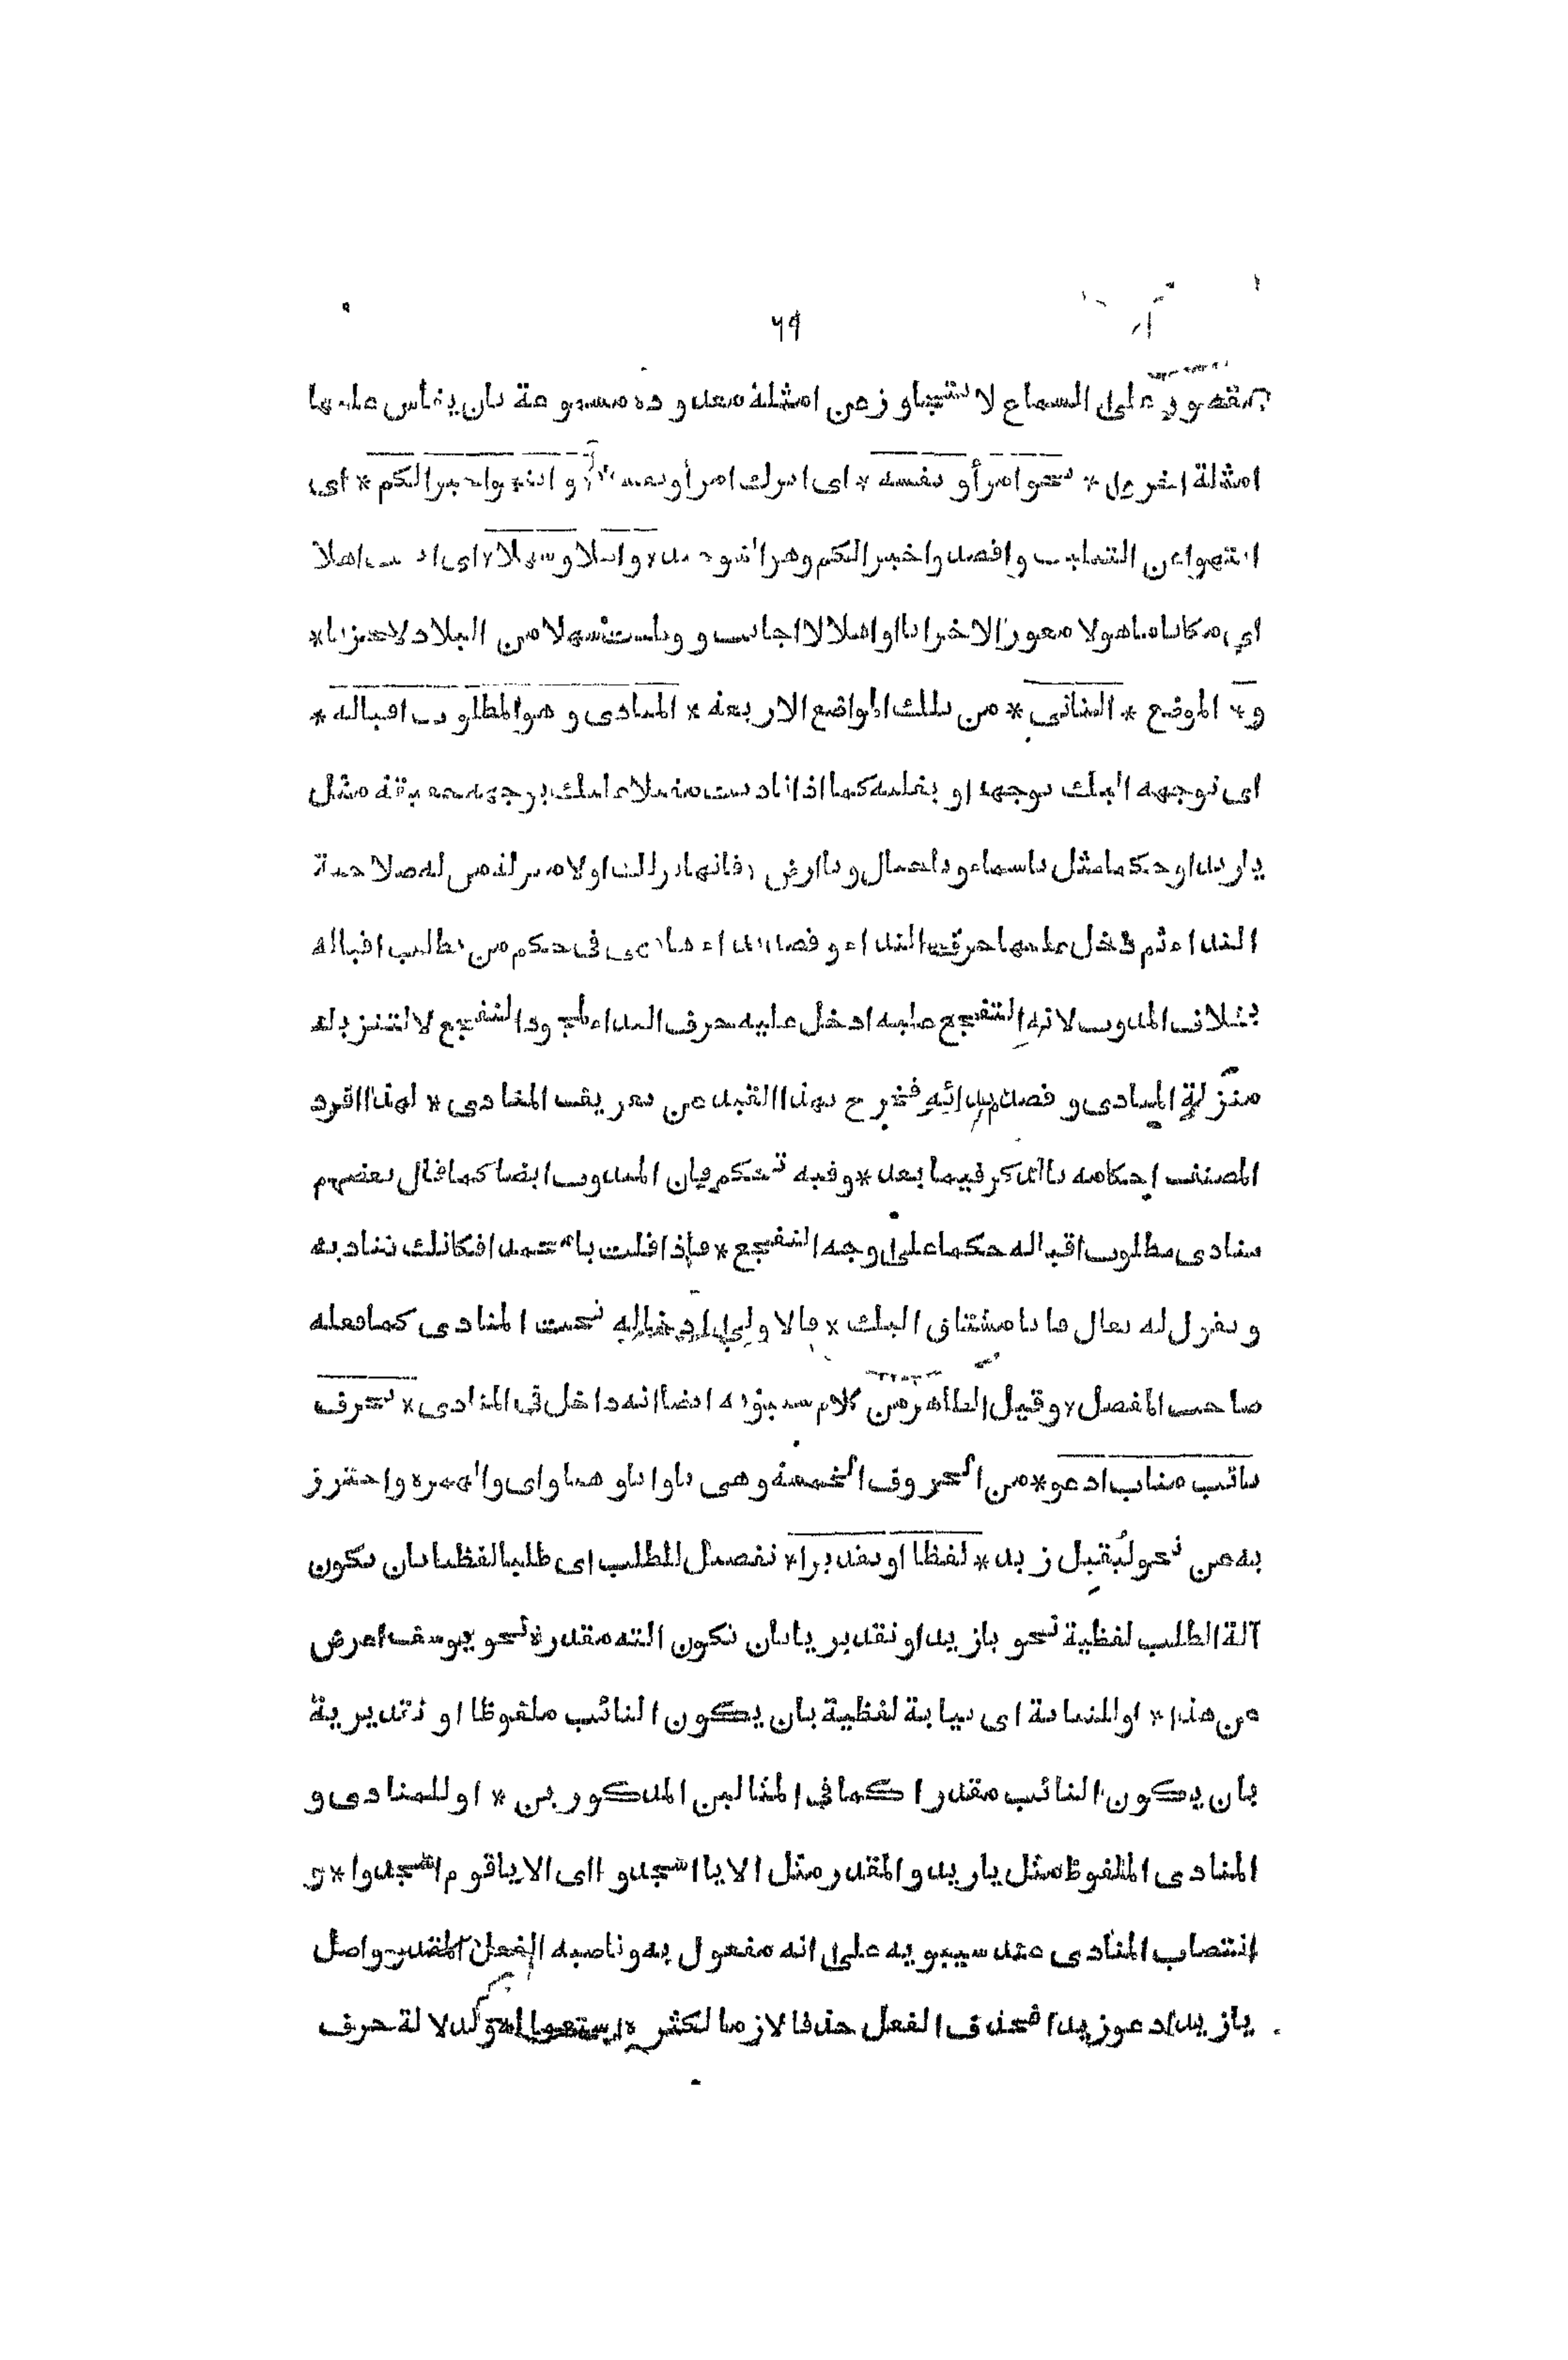 ٦٩
مقصور على السماع لا تتجاوز عن امثلة معدودة مسموعة بان يقاس عليها
امثلة اخرى * نحو امرأ و نفسه * اى اترك امرأ ونفسه * و انتهوا خيرا لكم * اى
انتهوا عن التثليث واقصدوا خيرا لكم وهو التوحيد * واهلا وسهلا * اى اتيت اهلا
اى مكانا ماهولا معمورا لا خرابا او اهلا لا اجانب و وطئت سهلا من البلاد لا حزنا *
و * الموضع * الثانى * من تلك المواضع الاربعة * المنادى و هو المطلوب اقباله *
اى توجهه اليك بوجهه او بقلبه كما اذا ناديت مقبلا عليك بوجهه حقيقة مثل
يا زيد او حكما مثل يا سماء و يا جبال و يا ارض فانها نزلت اولا منزلة من له صلاحية
النداء ثم ادخل عليها حرف النداء و قصد نداءها فهى فى حكم من يطلب اقباله
بخلاف المندوب لانه المتفجع عليه ادخل عليه حرف النداء لمجرد التفجع لا لتنزيله
منزلة المنادى و قصد ندائه فخرج بهذا القيد عن تعريف المنادى * لهذا افرد
المصنف احكامه بالذكر فيما بعد * وفيه تحكم فان المندوب ايضا كما قال بعضهم
منادى مطلوب اقباله حكما على وجه التفجع * فاذا قلت يا محمداه فكانك تناديه
و تقول له تعال فانا مشتاق اليك * فالاولى ادخاله تحت المنادى كما فعله
صاحب المفصل * وقيل الظاهر من كلام سيبويه ايضا انه داخل فى المنادى * بحرف
نائب مناب ادعو * من الحروف الخمسة وهى يا و ايا و هيا و اى و الهمزة واحترز
به عن نحو ليقبل زيد * لفظا او تقديرا * تفصيل للطلب اى طلبا لفظيا بان تكون
آلة الطلب لفظية نحو يا زيد او تقديريا بان تكون آلته مقدرة نحو يوسف اعرض
عن هذا * او للنيابة اى نيابة لفظية بان يكون النائب ملفوظا او تقديرية
بان يكون النائب مقدرا كما فى المثالين المذكورين * او للمنادى و
المنادى الملفوظ مثل يا زيد و المقدر مثل الا يا اسجدوا اى الا يا قوم اسجدوا * و
انتصاب المنادى عند سيبويه على انه مفعول به و ناصبه الفعل المقدر واصل
يا زيد ادعو زيدا فحذف الفعل حذفا لازما لكثرة استعماله و لدلالة حرف